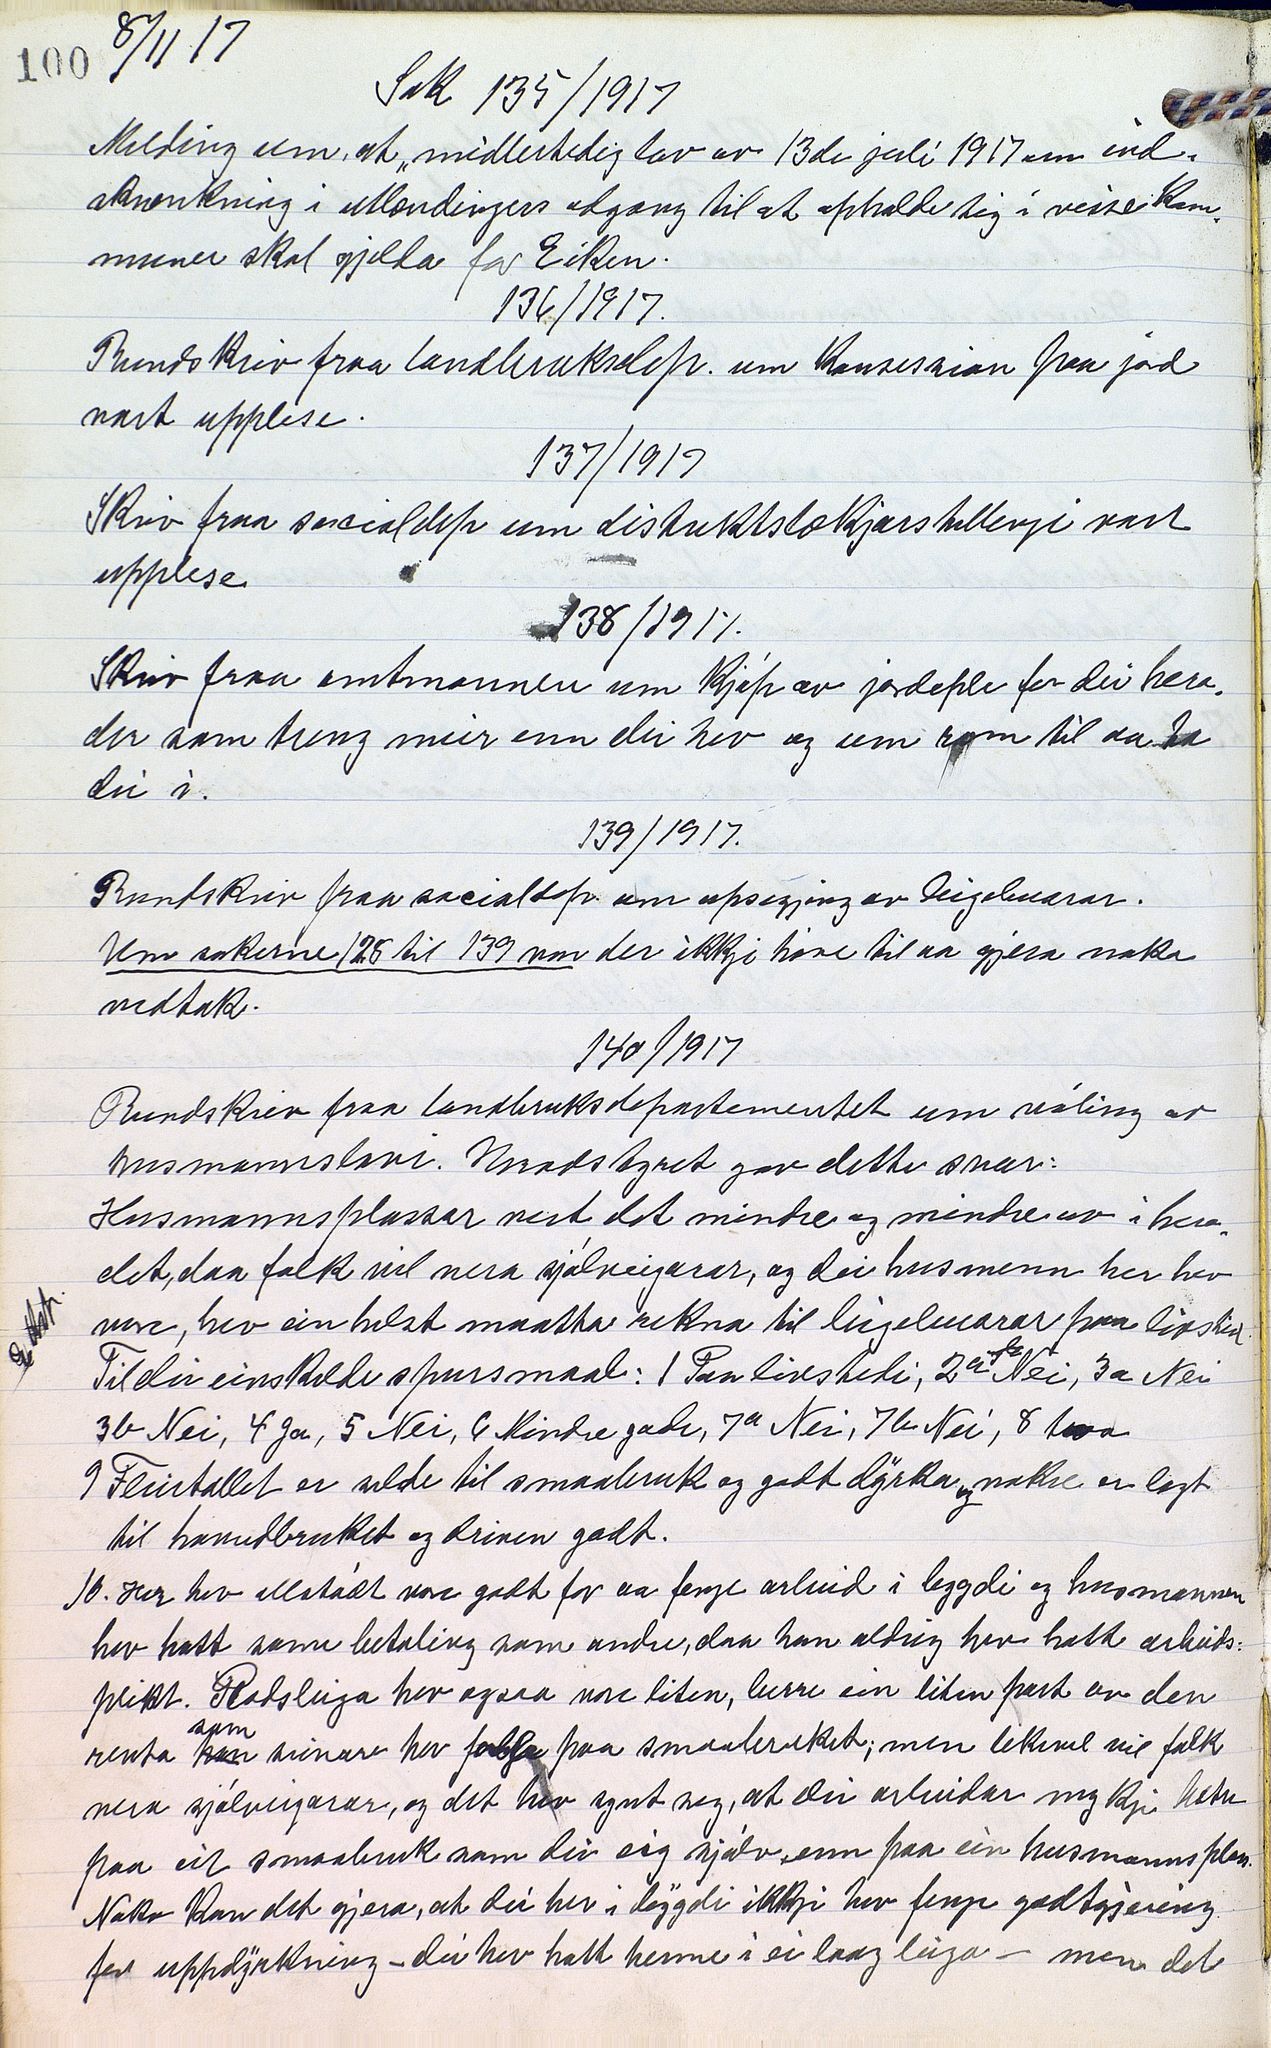 100 8/11 17
Sak 135/1917
Melding um, at "midlertidig lov av 13de juli 1917 um ind-
skrenkning i utlendingers adgang til at opholde sig i visse kom-
muner skal gjelda for Eiken.
136/1917.
Rundskriv fraa landbruksdep. um konsession paa jord
vart upplese.
137/1917
Skriv fraa socialdep um distriktslækjarstellingi vart
upplese
138/1917.
Skriv fraa amtmannen um kjøp av jordeple for dei hera-
der som treng meir enn dei hev og um rom til aa ha
dei i.
139/1917.
Rundskriv fraa socialdep um upsegjing av leigebuarar.
Um sakerne 128 til 139 var der ikkje høve til aa gjera noko
vedtak.
140/1917
Rundskriv fraa landbruksdepartementet um
husmannslovi. Heradstyret gav dette svar:
Husmannsplassar vert det mindre og mindre av i hera-
det, daa folk vil vera sjølveigarar, og dei husmenn her hev
vore, hev ein helst maatta rekna til leigebuarar paa livstid.
Til dei einskilde spursmaal: 1 Paa livstidi, 2a Nei, 3a Nei
3b Nei, 4 Ja, 5 Nei, 6 Mindre gode, 7a Nei, 7b Nei, 8 tvo
9 Fleirtallet er selde til smaabruk og godt dyrka og nokre er lagt
til hovudbruket og driven godt.
10. Her hev allstødt vore godt for aa fenge arbeid i bygdi og husmannen
hev hatt same betaling som andre, daa han aldrig hev hatt arbeids-
plikt. Pladsleiga hev ogsaa vore liten, berre ein liten part av den
renta som seinare hev falle paa smaabruket; men likevel vil folk
vera sjølveigarar, og det hev synt seg, at dei arbeidar mykje betre
paa eit smaabruk som dei eig sjølv, enn paa ein husmannsplass.
Noko kan det gjera, at dei her i bygdi ikkje hev fenge godtgjering
for uppdyrkning – dei hev hatt henne i ei laag leiga – men det